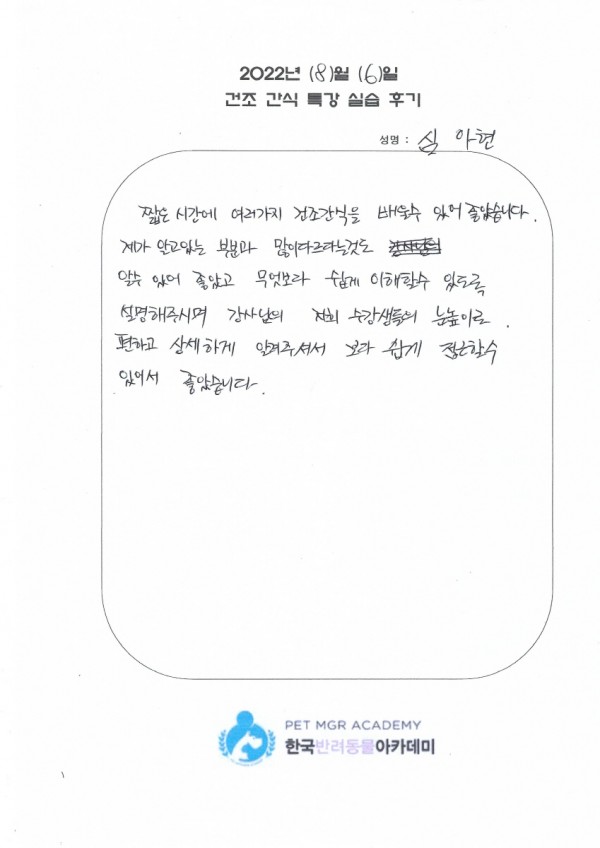 2022년 (8)월 (6)일
건조 간식 특강 실습 후기
성명 : 심 아현
짧은 시간에 여러가지 건조간식을 배울수 있어 좋았습니다.
제가 알고있는 부분과 많이다르다는것도
알수 있어 좋았고 무엇보다 쉽게 이해할수 있도록
설명해주시며 강사님의 저희 수강생들의 눈높이로
편하고 상세하게 알려주셔서 보다 쉽게 접근할수
있어서 좋았습니다.
PET MGR ACADEMY
한국반려동물아카데미